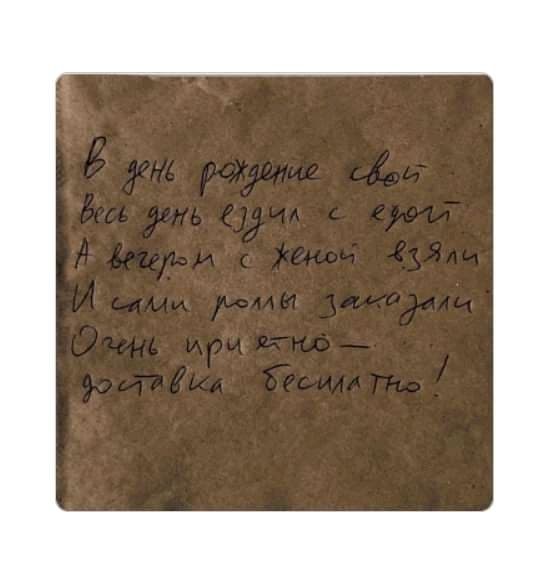 В день рождение свой
Весь день ездил с едой
А вечером с женой взяли
И сами роллы заказали
Очень приетно —
доставка бесплатно!